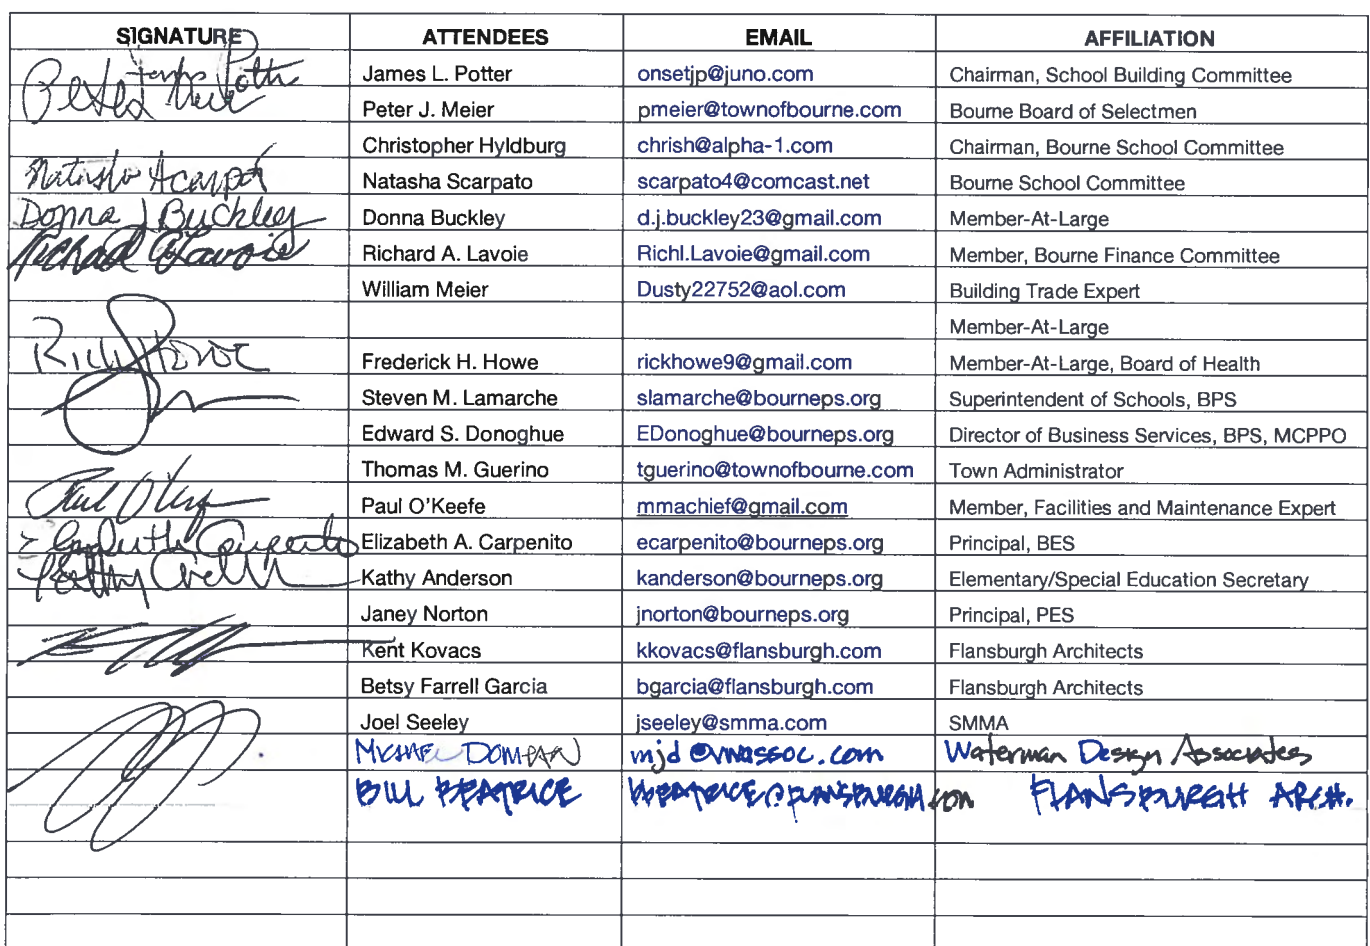 SIGNATURE ATTENDEES EMAIL AFFILIATION
James Potter James L. Potter onsetjp@juno.com Chairman, School Building Committee
Peter Meier Peter J. Meier pmeier@townofbourne.com Bourne Board of Selectmen
Christopher Hyldburg chrish@alpha-1.com Chairman, Bourne School Committee
Natasha Scarpato Natasha Scarpato scarpato4@comcast.net Bourne School Committee
Donna J Buckley Donna Buckley d.j.buckley23@gmail.com Member-At-Large
Richard A Lavoie Richard A. Lavoie Richl.Lavoie@gmail.com Member, Bourne Finance Committee
William Meier Dusty22752@aol.com Building Trade Expert
Member-At-Large
Rick Howe Frederick H. Howe rickhowe9@gmail.com Member-At-Large, Board of Health
Steven M. Lamarche slamarche@bourneps.org Superintendent of Schools, BPS
Edward S. Donoghue EDonoghue@bourneps.org Director of Business Services, BPS, MCPPO
Thomas M. Guerino tguerino@townofbourne.com Town Administrator
Paul O'Keefe mmachief@gmail.com Member, Facilities and Maintenance Expert
Elizabeth A. Carpenito ecarpenito@bourneps.org Principal, BES
Kathy Anderson kanderson@bourneps.org Elementary/Special Education Secretary
Janey Norton jnorton@bourneps.org Principal, PES
Kent Kovacs kkovacs@flansburgh.com Flansburgh Architects
Betsy Farrell Garcia bgarcia@flansburgh.com Flansburgh Architects
Joel Seeley jseeley@smma.com SMMA
DOMPAN Waterman Design Associates
BILL BEATRICE FLANSBURGH ARCH.